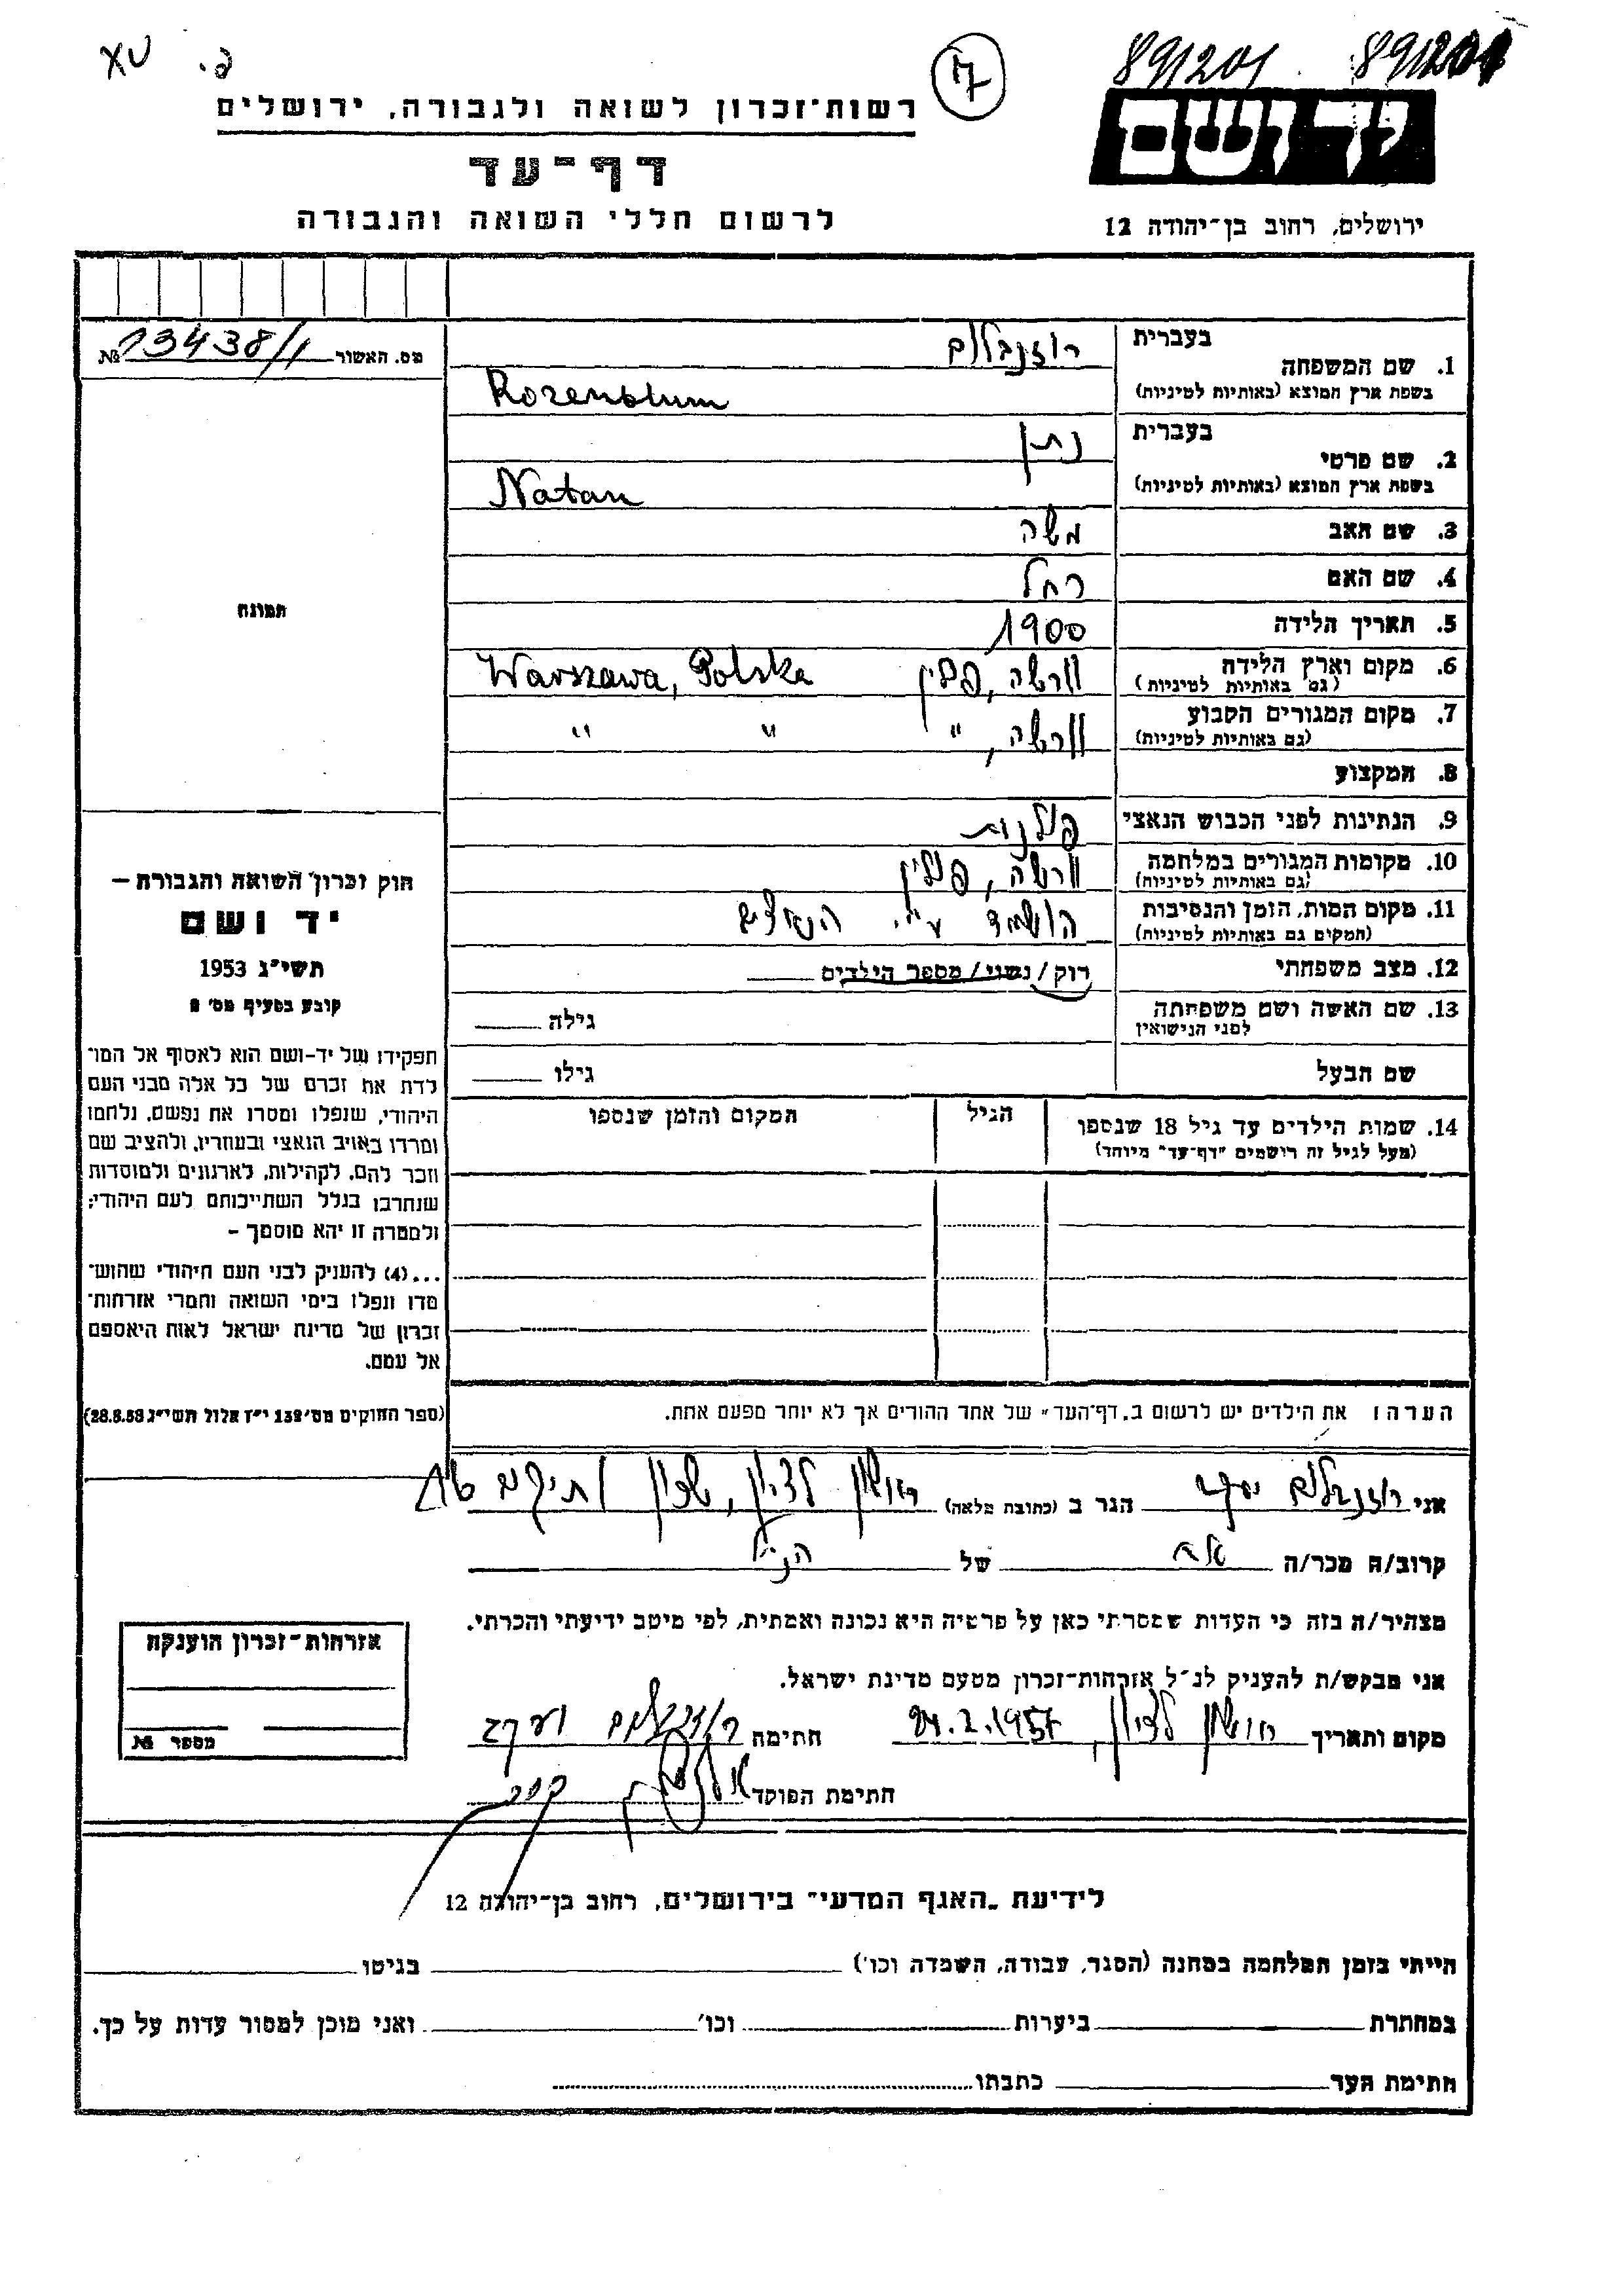 XV
פ.
17
891201 891201
יד ושם
רשות־זכרון לשואה ולגבורה, ירושלים
דף־עד
לרשום חללי השואה והגבורה
ירושלים, רחוב בן־יהודה 12
מס. האשור 13438/1 №
1. שם המשפחה
בעברית רוזנבלום
בשפת ארץ המוצא (באותיות לטיניות) Rozenblum
2. שם פרטי
בעברית נתן
בשפת ארץ המוצא (באותיות לטיניות) Natan
3. שם האב משה
4. שם האם רחל
5. תאריך הלידה 1900
6. מקום וארץ הלידה ורשה, פולין Warszawa, Polska
(גם באותיות לטיניות)
7. מקום המגורים הקבוע ורשה, " " "
(גם באותיות לטיניות)
8. המקצוע
9. הנתינות לפני הכבוש הנאצי פולנית
10. מקומות המגורים במלחמה ורשה, פולין
(גם באותיות לטיניות)
11. מקום המות, הזמן והנסיבות הושמד ע"י הנאצים
(המקום גם באותיות לטיניות)
12. מצב משפחתי רוק / נשוי / מספר הילדים
13. שם האשה ושם משפחתה גילה
לפני הנישואין
שם הבעל גילו
14. שמות הילדים עד גיל 18 שנספו הגיל המקום והזמן שנספו
(מעל לגיל זה רושמים "דף־עד" מיוחד)
הערה: את הילדים יש לרשום ב„דף־העד" של אחד ההורים אך לא יותר מפעם אחת.
תמונה
חוק זכרון השואה והגבורה –
יד ושם
תשי"ג 1953
קובע בסעיף מס' 2
תפקידו של יד-ושם הוא לאסוף אל המו־
לדת את זכרם של כל אלה מבני העם
היהודי, שנפלו ומסרו את נפשם, נלחמו
ומרדו באויב הנאצי ובעוזריו, ולהציב שם
וזכר להם, לקהילות, לארגונים ולמוסדות
שנחרבו בגלל השתייכותם לעם היהודי;
ולמטרה זו יהא מוסמך –
...(4) להעניק לבני העם היהודי שהוש־
מדו ונפלו בימי השואה והמרי אזרחות־
זכרון של מדינת ישראל לאות היאספם
אל עמם.
(ספר החוקים מס' 132 י"ז אלול תשי"ג 28.8.53)
אני רוזנבלום יעקב הגר ב (כתובת מלאה) ראשון לציון, שכון ותיקים
קרוב/ה מכר/ה אח של הנ"ל
מצהיר/ה בזה כי העדות שמסרתי כאן על פרטיה היא נכונה ואמתית, לפי מיטב ידיעתי והכרתי.
אני מבקש/ת להעניק לנ"ל אזרחות־זכרון מטעם מדינת ישראל.
מקום ותאריך ראשון לציון, 24.2.1957 חתימה רוזנבלום יעקב
חתימת הפוקד
אזרחות־זכרון הוענקה
מספר №
לידיעת „האגף המדעי" בירושלים, רחוב בן־יהודה 12
הייתי בזמן המלחמה במחנה (הסגר, עבודה, השמדה וכו') בגיטו
במחתרת ביערות וכו' ואני מוכן למסור עדות על כך.
חתימת העד כתבתו